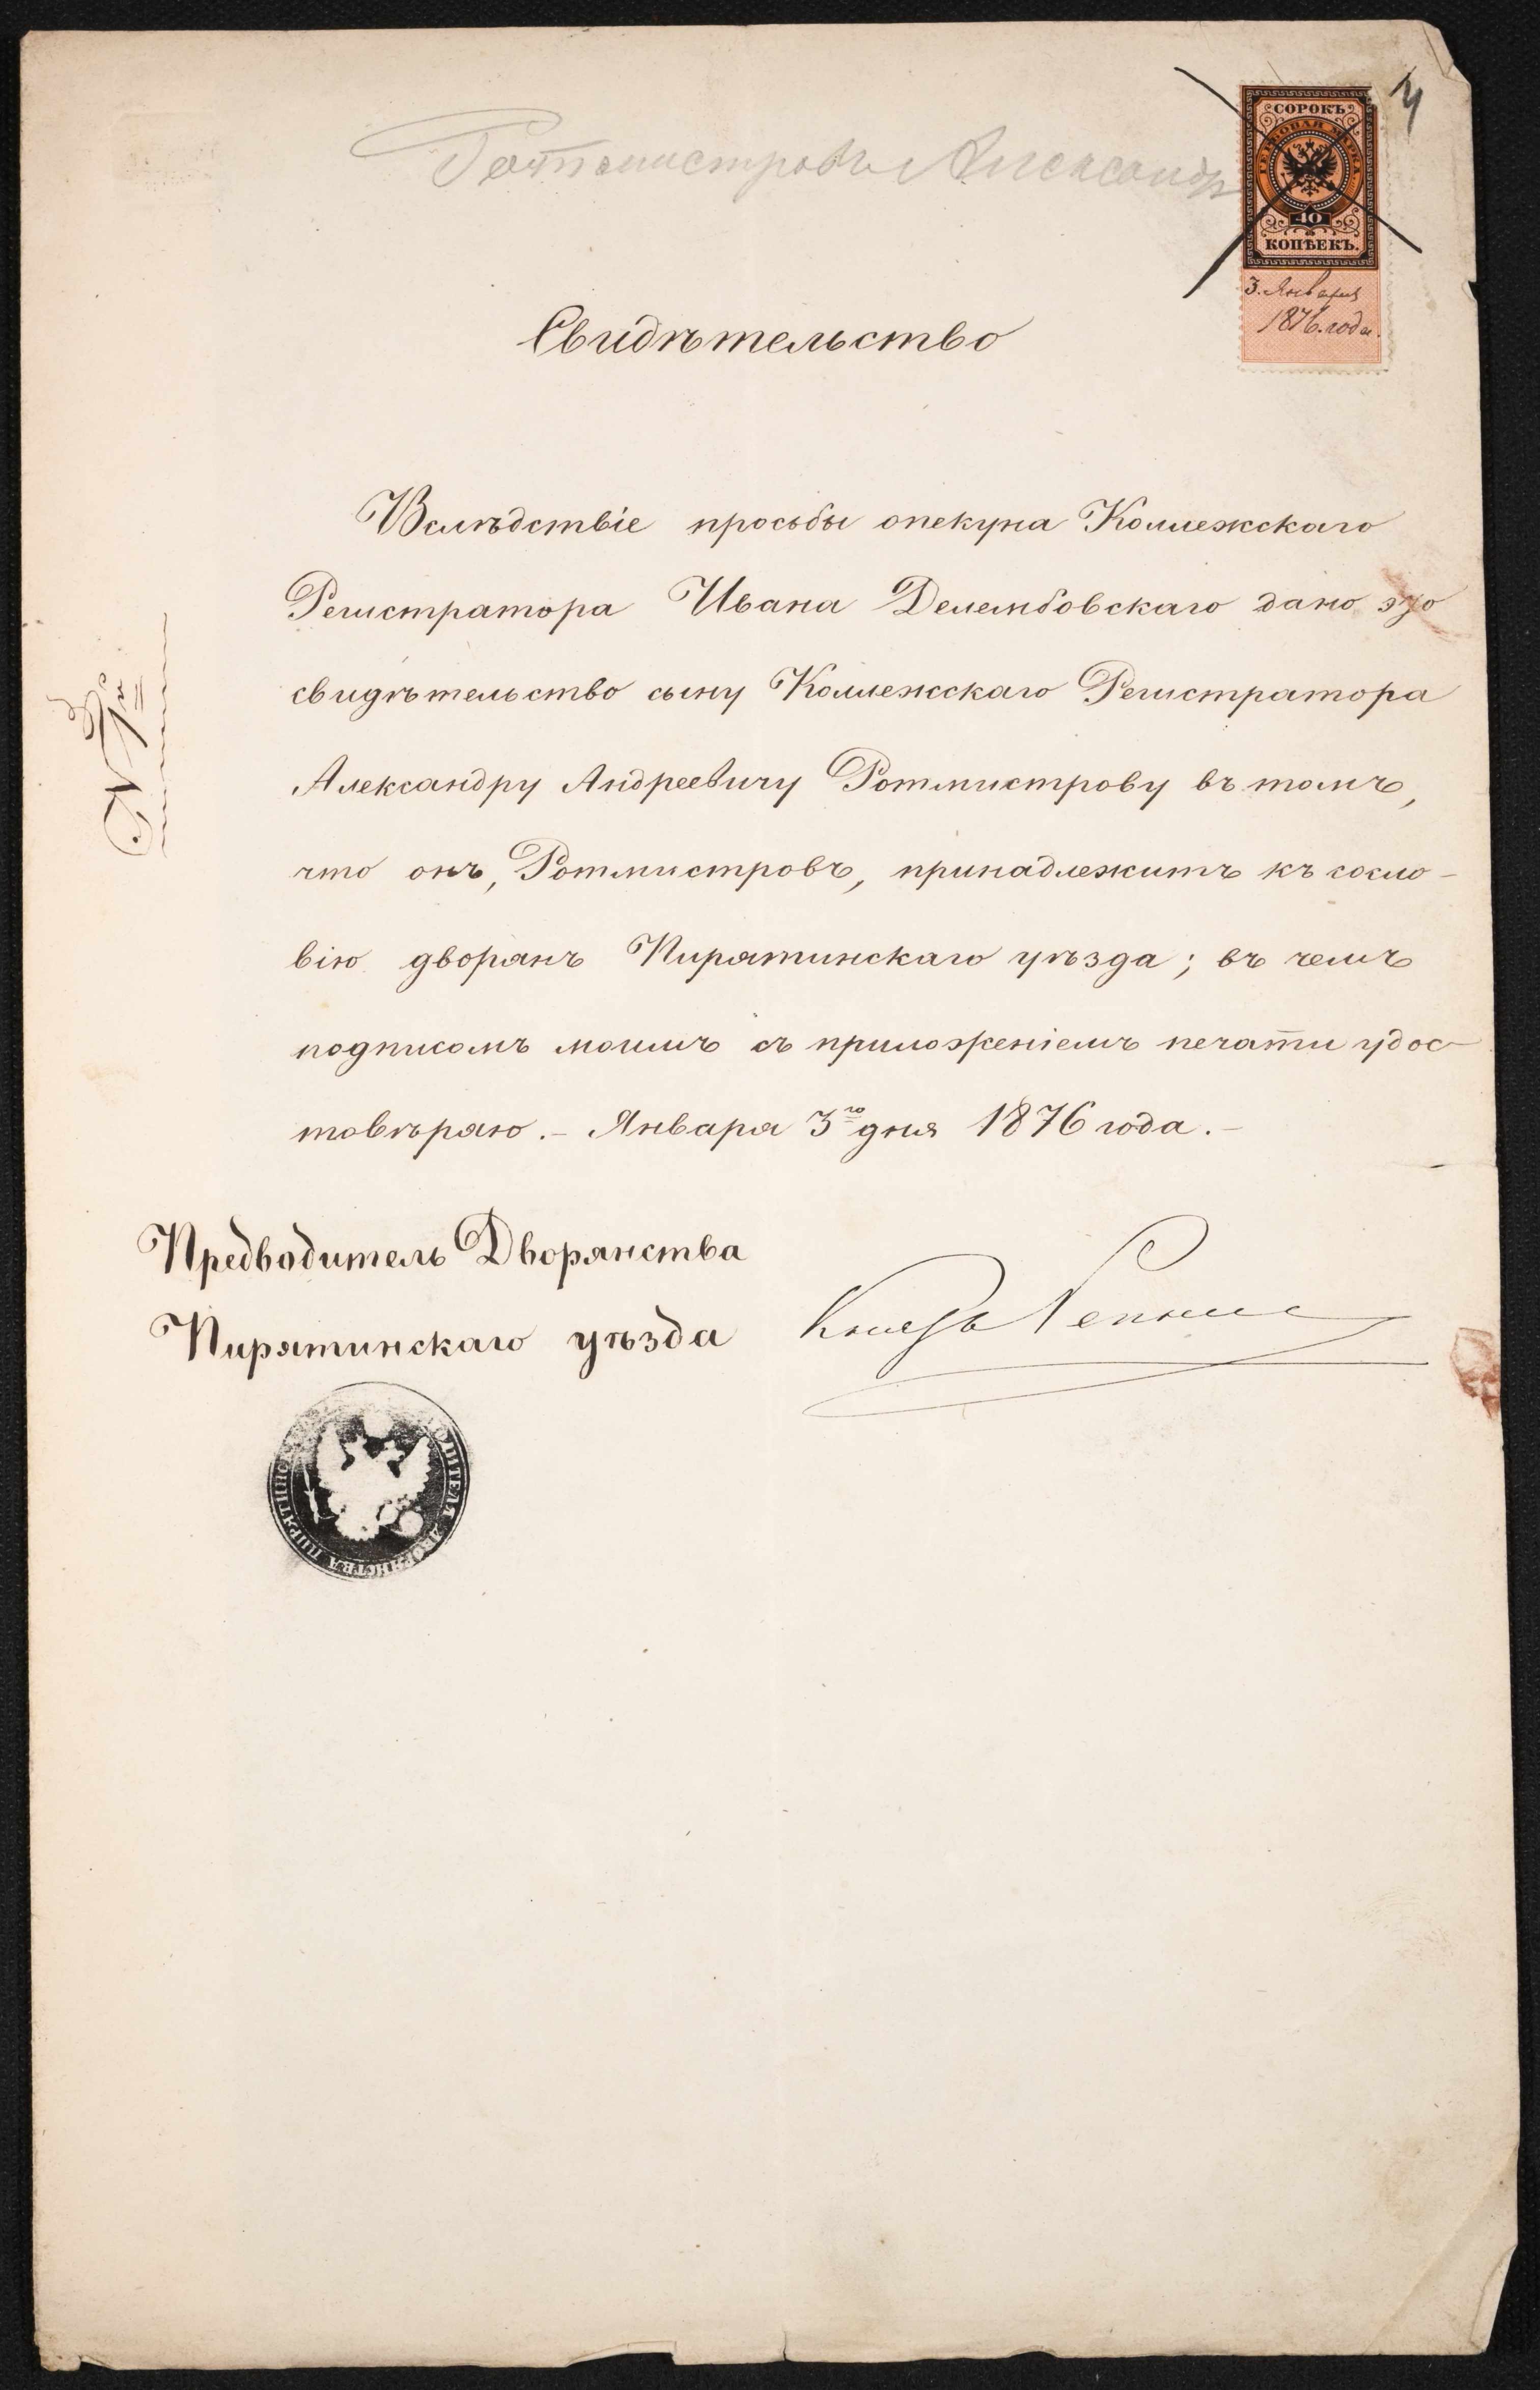 4
Ротмистровъ Александръ
СОРОКЪ
ГЕРБОВАЯ МАРКА
40
КОПѢЕКЪ.
3. Января
1876. года.
Свидѣтельство
Вслѣдствіе просьбы опекуна Коллежскаго
Регистратора Ивана Делембовскаго дано это
свидѣтельство сыну Коллежскаго Регистратора
Александру Андреевичу Ротмистрову въ томъ,
что онъ, Ротмистровъ, принадлежитъ къ сосло-
вію дворянъ Пирятинскаго уѣзда; въ чемъ
подписомъ моимъ съ приложеніемъ печати удос-
товѣряю.- Января 3го дня 1876 года.-
Предводитель Дворянства
Пирятинскаго уѣзда Князь Репнинъ
ДВОРЯНСТВА ПИРЯТИНС